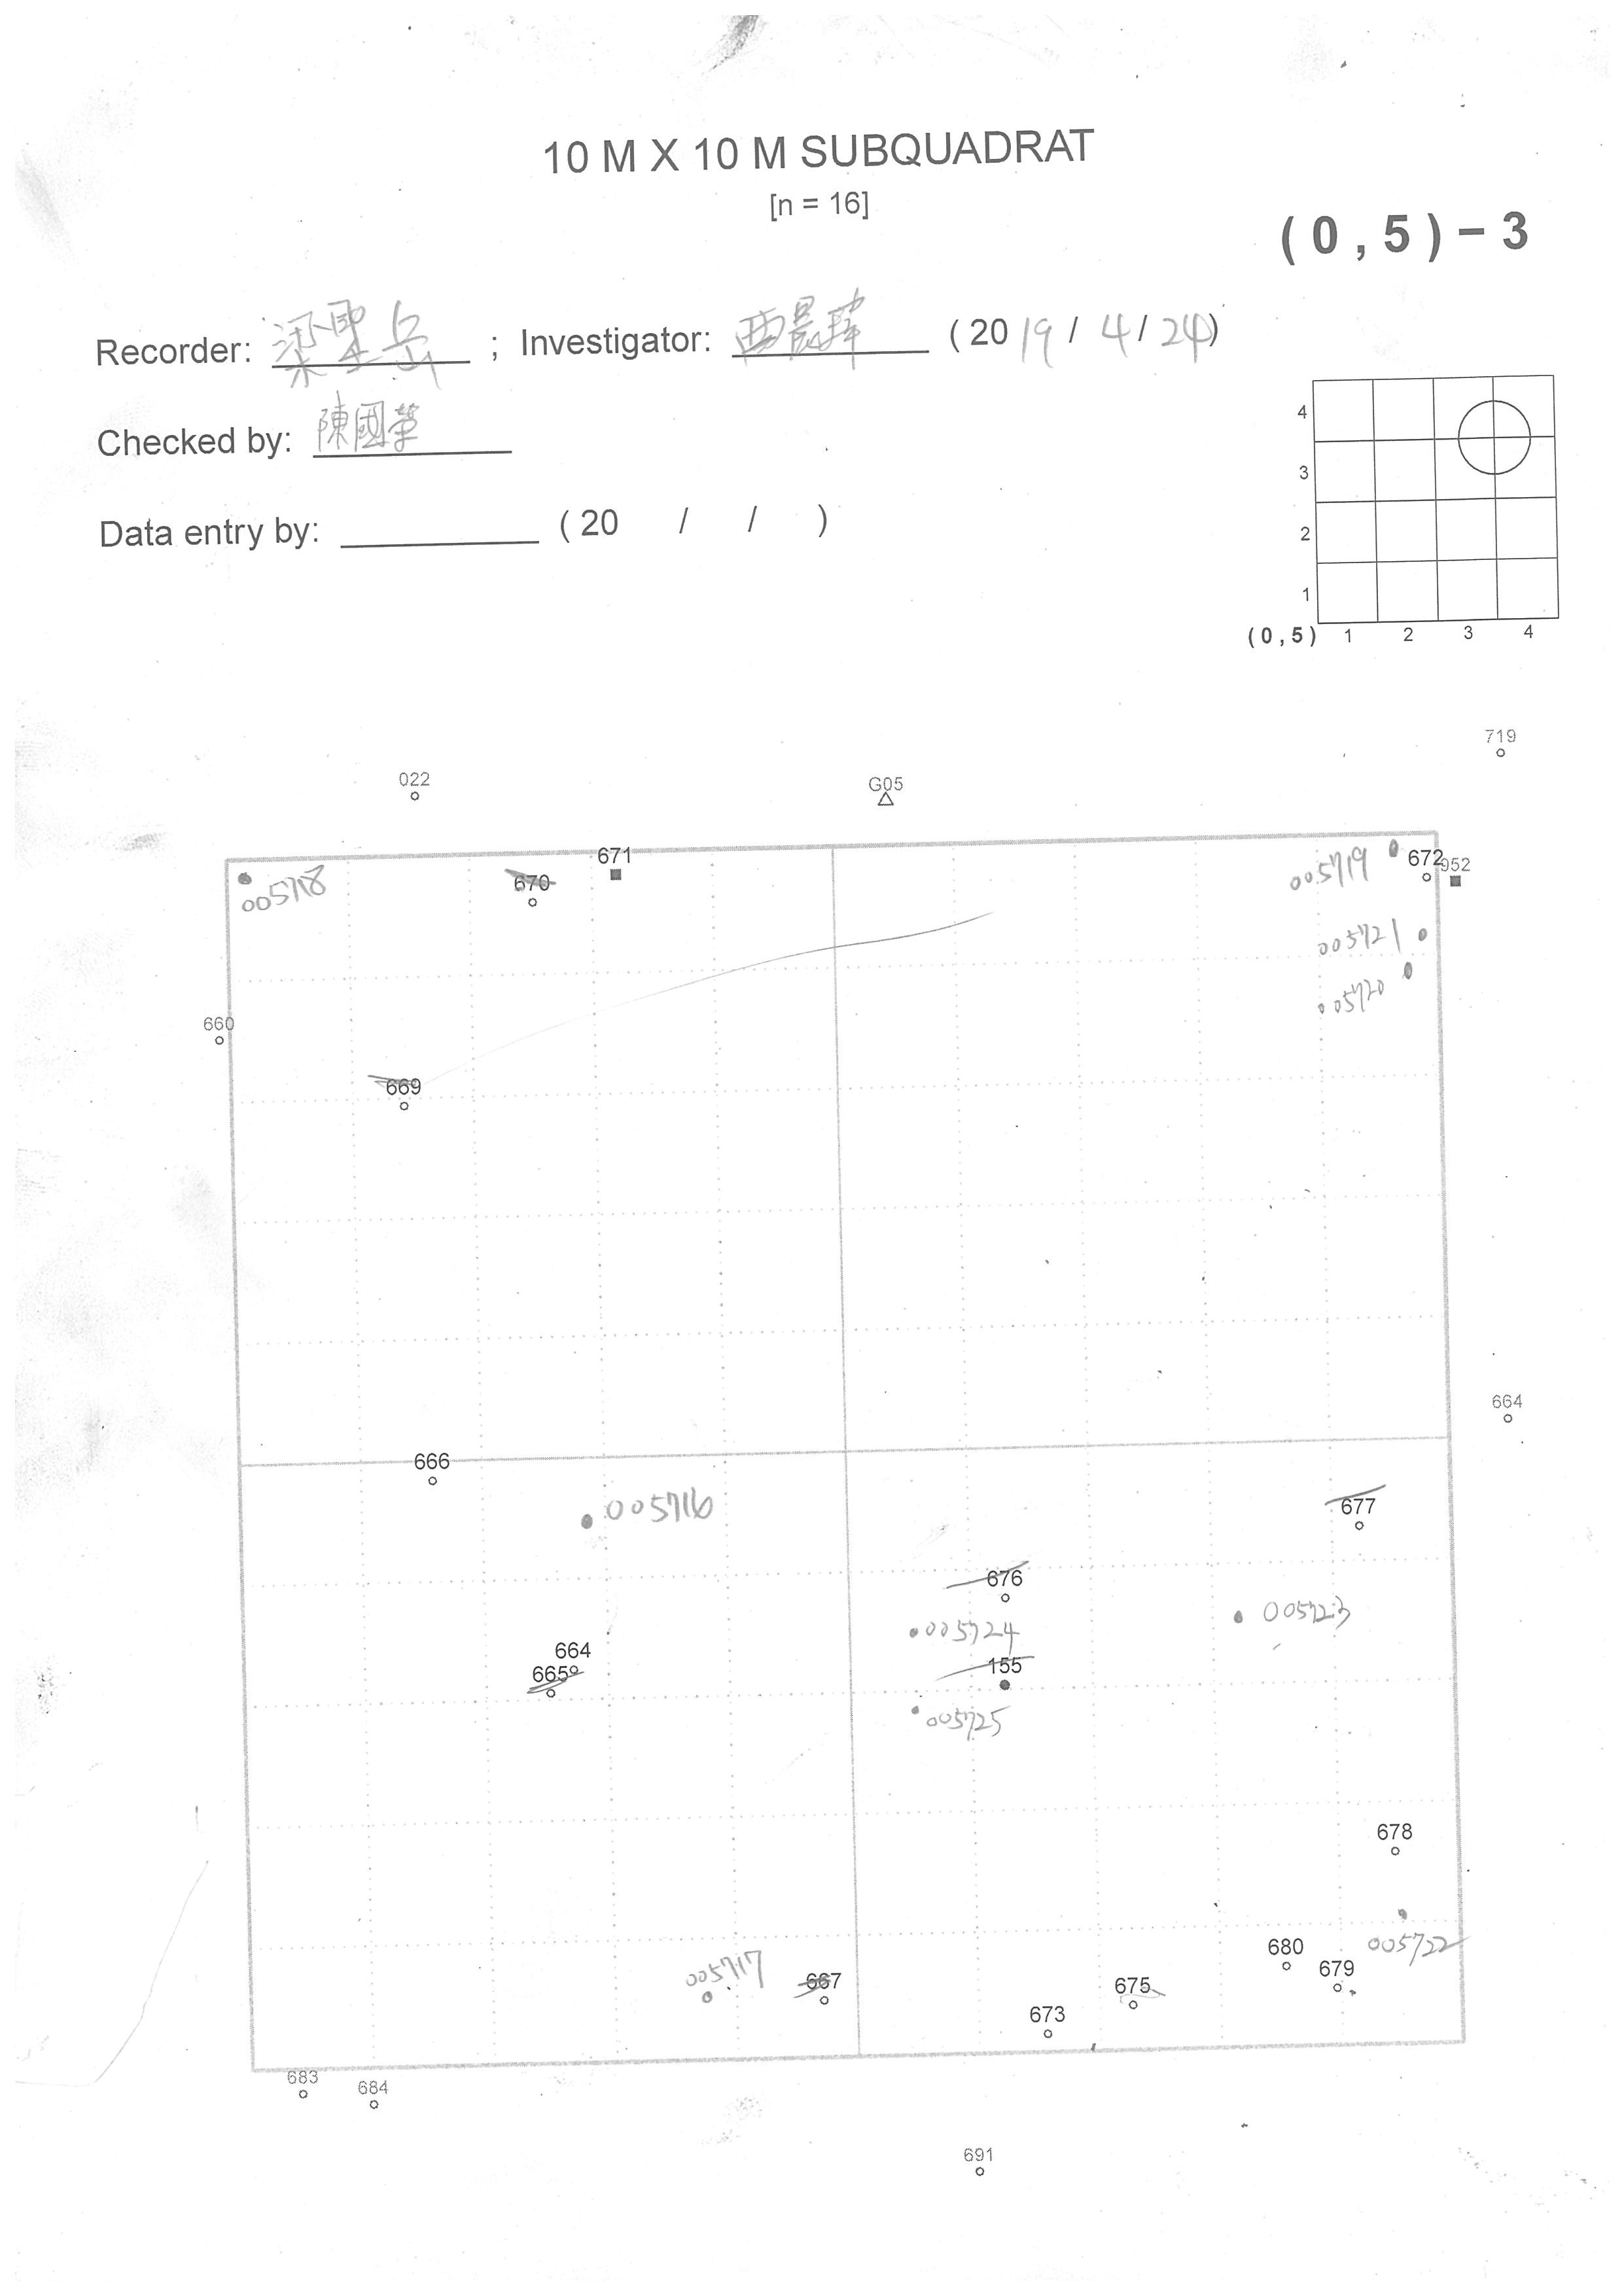 10 M X 10 M SUBQUADRAT
[n = 16]
(0,5)-3
Recorder: 梁聖岳 ; Investigator: 西晨瑋 (2019/4/24)
Checked by: 陳國華
Data entry by: (20 / / )
4
3
2
1
(0,5) 1 2 3 4
719
022
G05
671
672
952
005718
670
005719
005721
005720
660
669
664
666
005716
677
676
005723
005724
664
665
155
005725
678
005722
005717
667
680
679
675
673
683
684
691